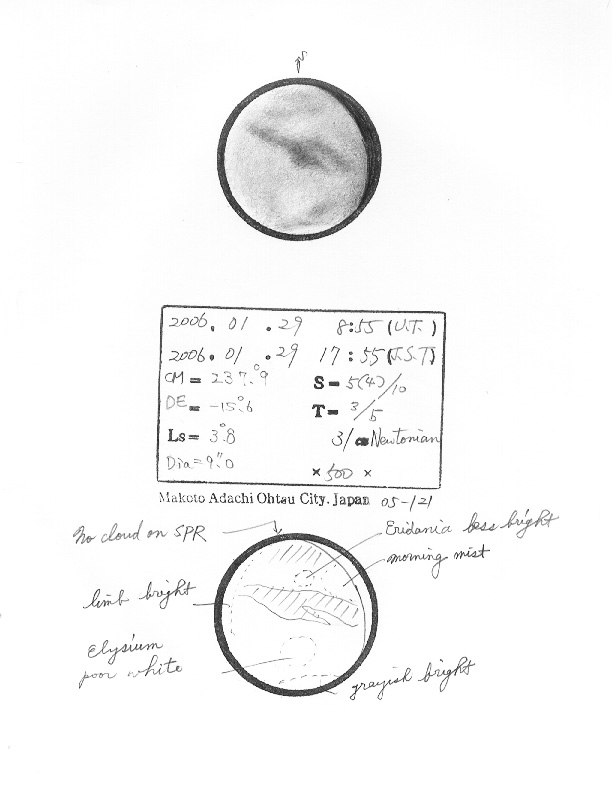 2006. 01 .29 8:55 (U.T.)
2006. 01 .29 17:55 (J.S.T)
CM = 237.°9 S= 5(4)/10
DE = -15.°6 T= 3/5
Ls= 3.°8 31 cm Newtonian
Dia=9."0 × 500 ×
Makoto Adachi Ohtsu City. Japan 05-121
No cloud on SPR
Eridania less bright
morning mist
limb bright
Elysium
poor white
grayish bright